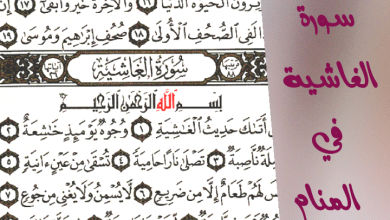 يؤثرون الحيوة الدنيا ١٦ والآخرة خير وأبقى ١٧ إن
لفى الصحف الأولى ١٨ صحف إبرهيم وموسى ١٩
سورة الغاشية
بسم الله الرحمن الرحيم
أتىك حديث الغشية ١ وجوه يومئذ خشعة ٢
ملة ناصبة ٣ تصلى نارا حامية ٤ تسقى من عين ءانية ٥
س لهم طعام إلا من ضريع ٦ لا يسمن ولا يغنى من جوع ٧
سورة
الغاشية
في
المنام